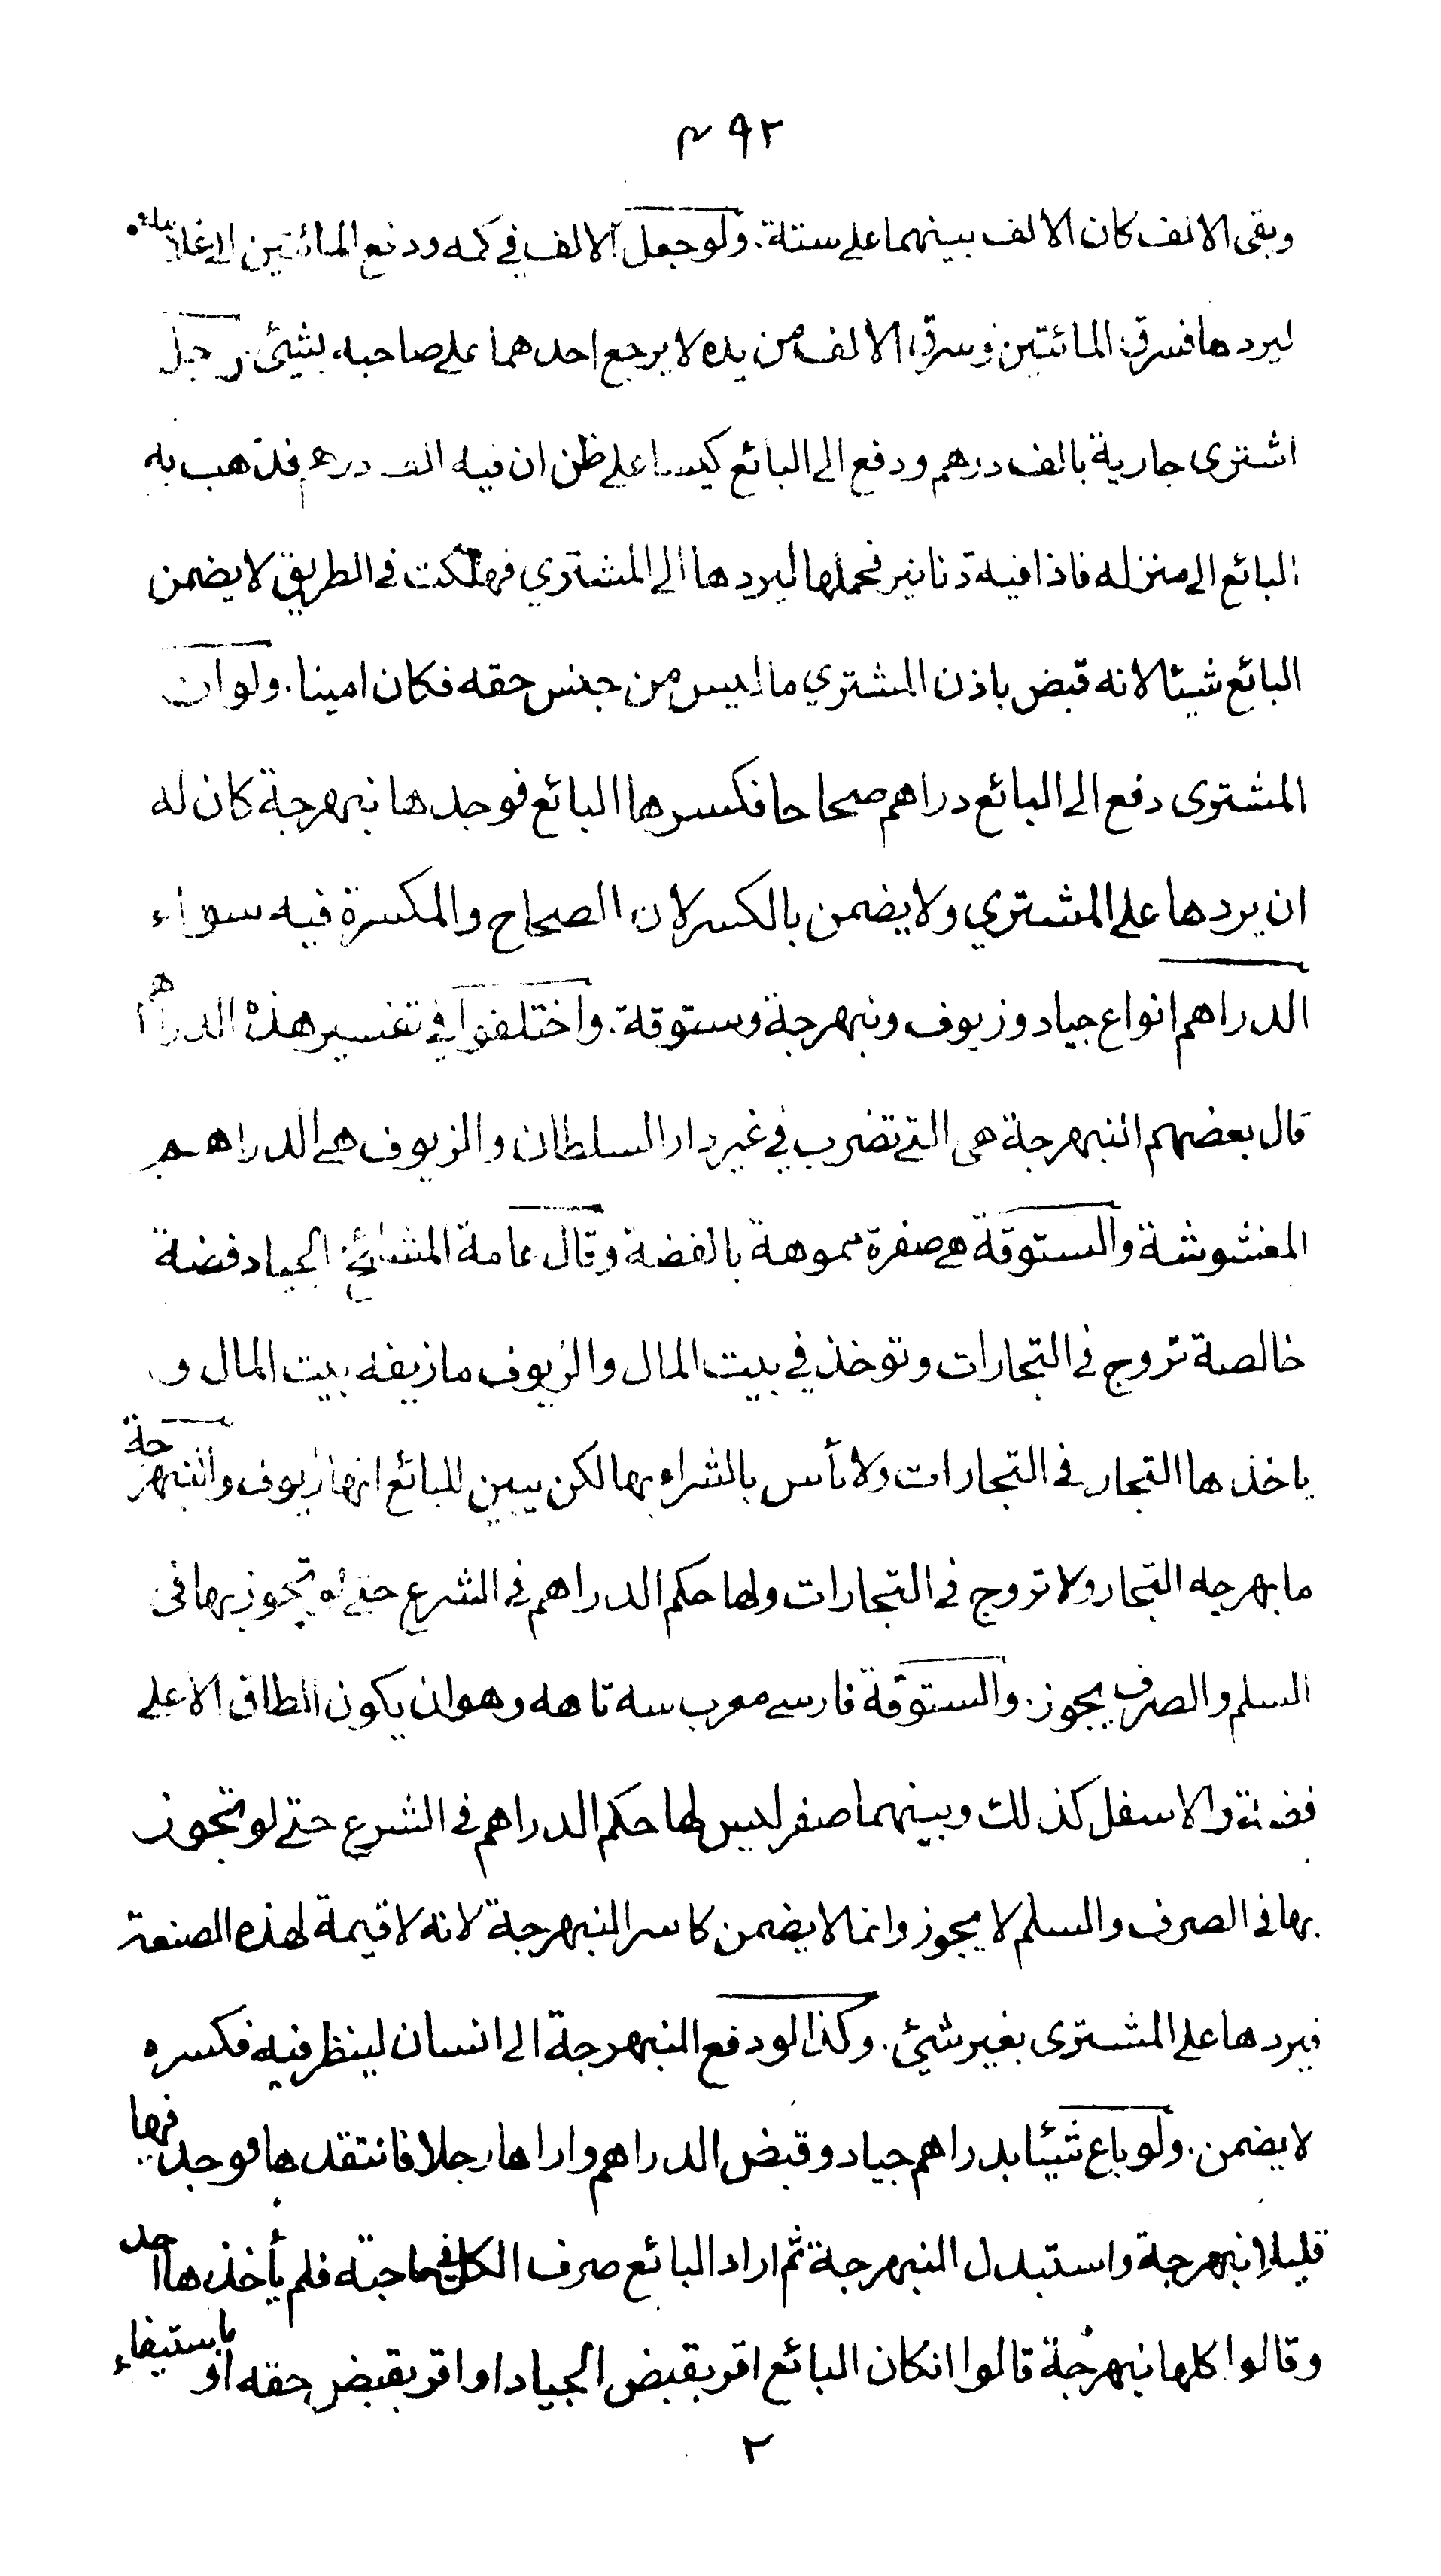 ٤٩٢
وبقى الالف كان الالف بينهما على ستة. ولو جعل الالف في كمه ودفع المائتين الى غلامه
ليردها فسرق المائتين وسرق الالف من يده لا يرجع احدهما على صاحبه بشئ. رجل
اشترى جارية بالف درهم ودفع الى البائع كيسا على ظن ان فيه الف درهم فذهب به
البائع الى منزله فاذا فيه دنانير فحملها ليردها الى المشتري فهلكت في الطريق لا يضمن
البائع شيئا لانه قبض باذن المشتري ما ليس من جنس حقه فكان امينا. ولو ان
المشترى دفع الى البائع دراهم صحاحا فكسرها البائع فوجدها نبهرجة كان له
ان يردها على المشتري ولا يضمن بالكسر لان الصحاح والمكسرة فيه سواء
الدراهم انواع جياد وزيوف ونبهرجة وستوقة. واختلفوا في تفسير هذه الدراهم
قال بعضهم النبهرجة هى التي تضرب في غير دار السلطان والزيوف هي الدراهم
المغشوشة والستوقة هي صفرة مموهة بالفضة وقال عامة المشائخ الجياد فضة
خالصة تروج في التجارات وتوخذ في بيت المال والزيوف ما زيفه بيت المال و
ياخذها التجار في التجارات ولا بأس بالشراء بها لكن يبين للبائع انها زيوف والنبهرجة
ما بهرجه التجار ولا تروج في التجارات ولها حكم الدراهم في الشرع حتى لو تجوز بها فى
السلم والصرف يجوز. والستوقة فارسي معرب سه تاهه وهو ان يكون الطاق الاعلى
فضة والاسفل كذلك وبينهما صفر ليس لها حكم الدراهم في الشرع حتى لو تجوز
بها فى الصرف والسلم لا يجوز وانما لا يضمن كاسر النبهرجة لانه لا قيمة لهذه الصنعة
فيردها على المشترى بغير شئ. وكذا لو دفع النبهرجة الى انسان لينظر فيه فكسره
لا يضمن. ولو باع شيئا بدراهم جياد وقبض الدراهم واراها رجلا فانتقدها فوجد فيها
قليلا نبهرجة واستبدل النبهرجة ثم اراد البائع صرف الكل في حاجته فلم يأخذها احد
وقالوا كلها نبهرجة قالوا انكان البائع اقر بقبض الجياد او اقر بقبض حقه او باستيفاء
٢